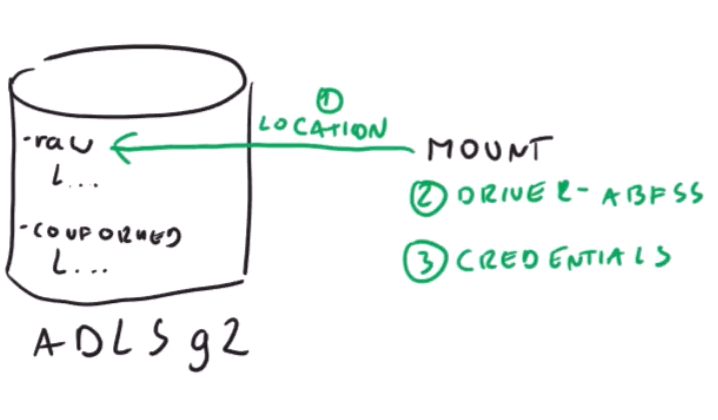 -raw
L...
-CONFORMED
L...
ADLS g2
① LOCATION
MOUNT
② DRIVER-ABFSS
③ CREDENTIALS